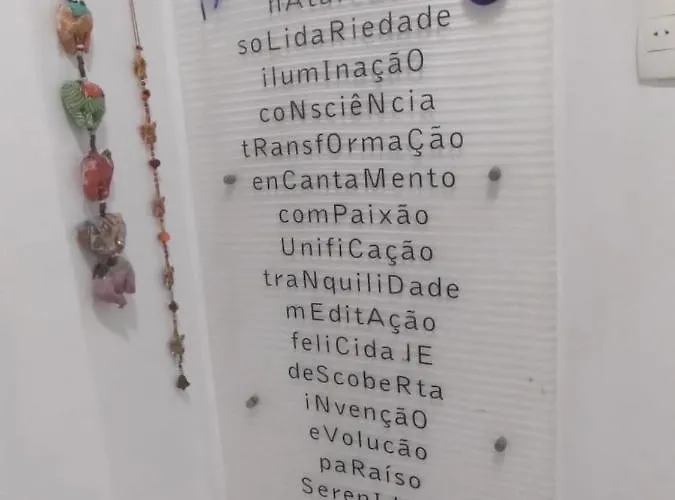 soLidaRiedade
ilumInaçãO
coNsciêNcia
tRansfOrmaÇão
enCantaMento
comPaixão
UnifiCação
traNquiliDade
mEditAção
feliCida JE
deScobeRta
iNvençãO
eVolucão
paRaíso